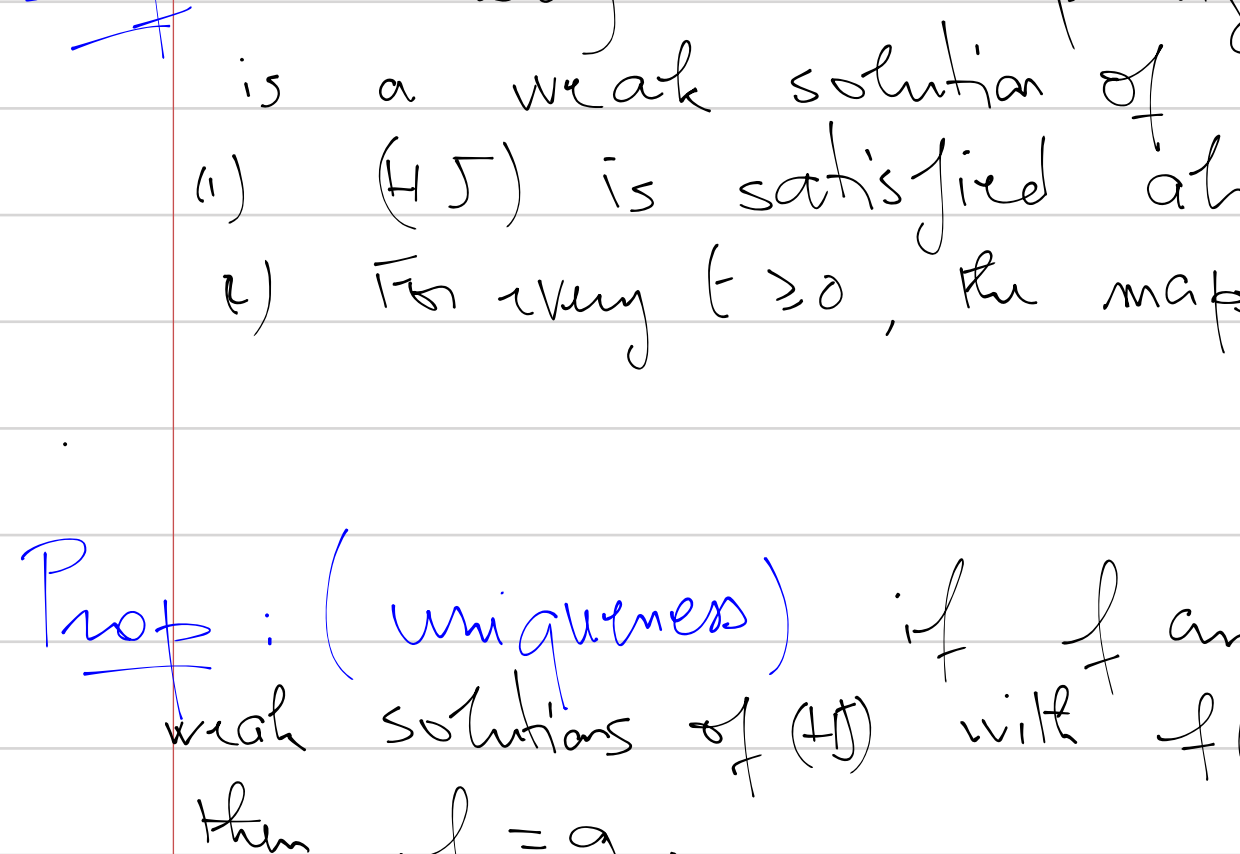 is a weak solution of
(1) (HJ) is satisfied al
2) For every t ≥ 0, the map
Prop : (uniqueness) if f an
weak solutions of (HJ) with f(
then f = g